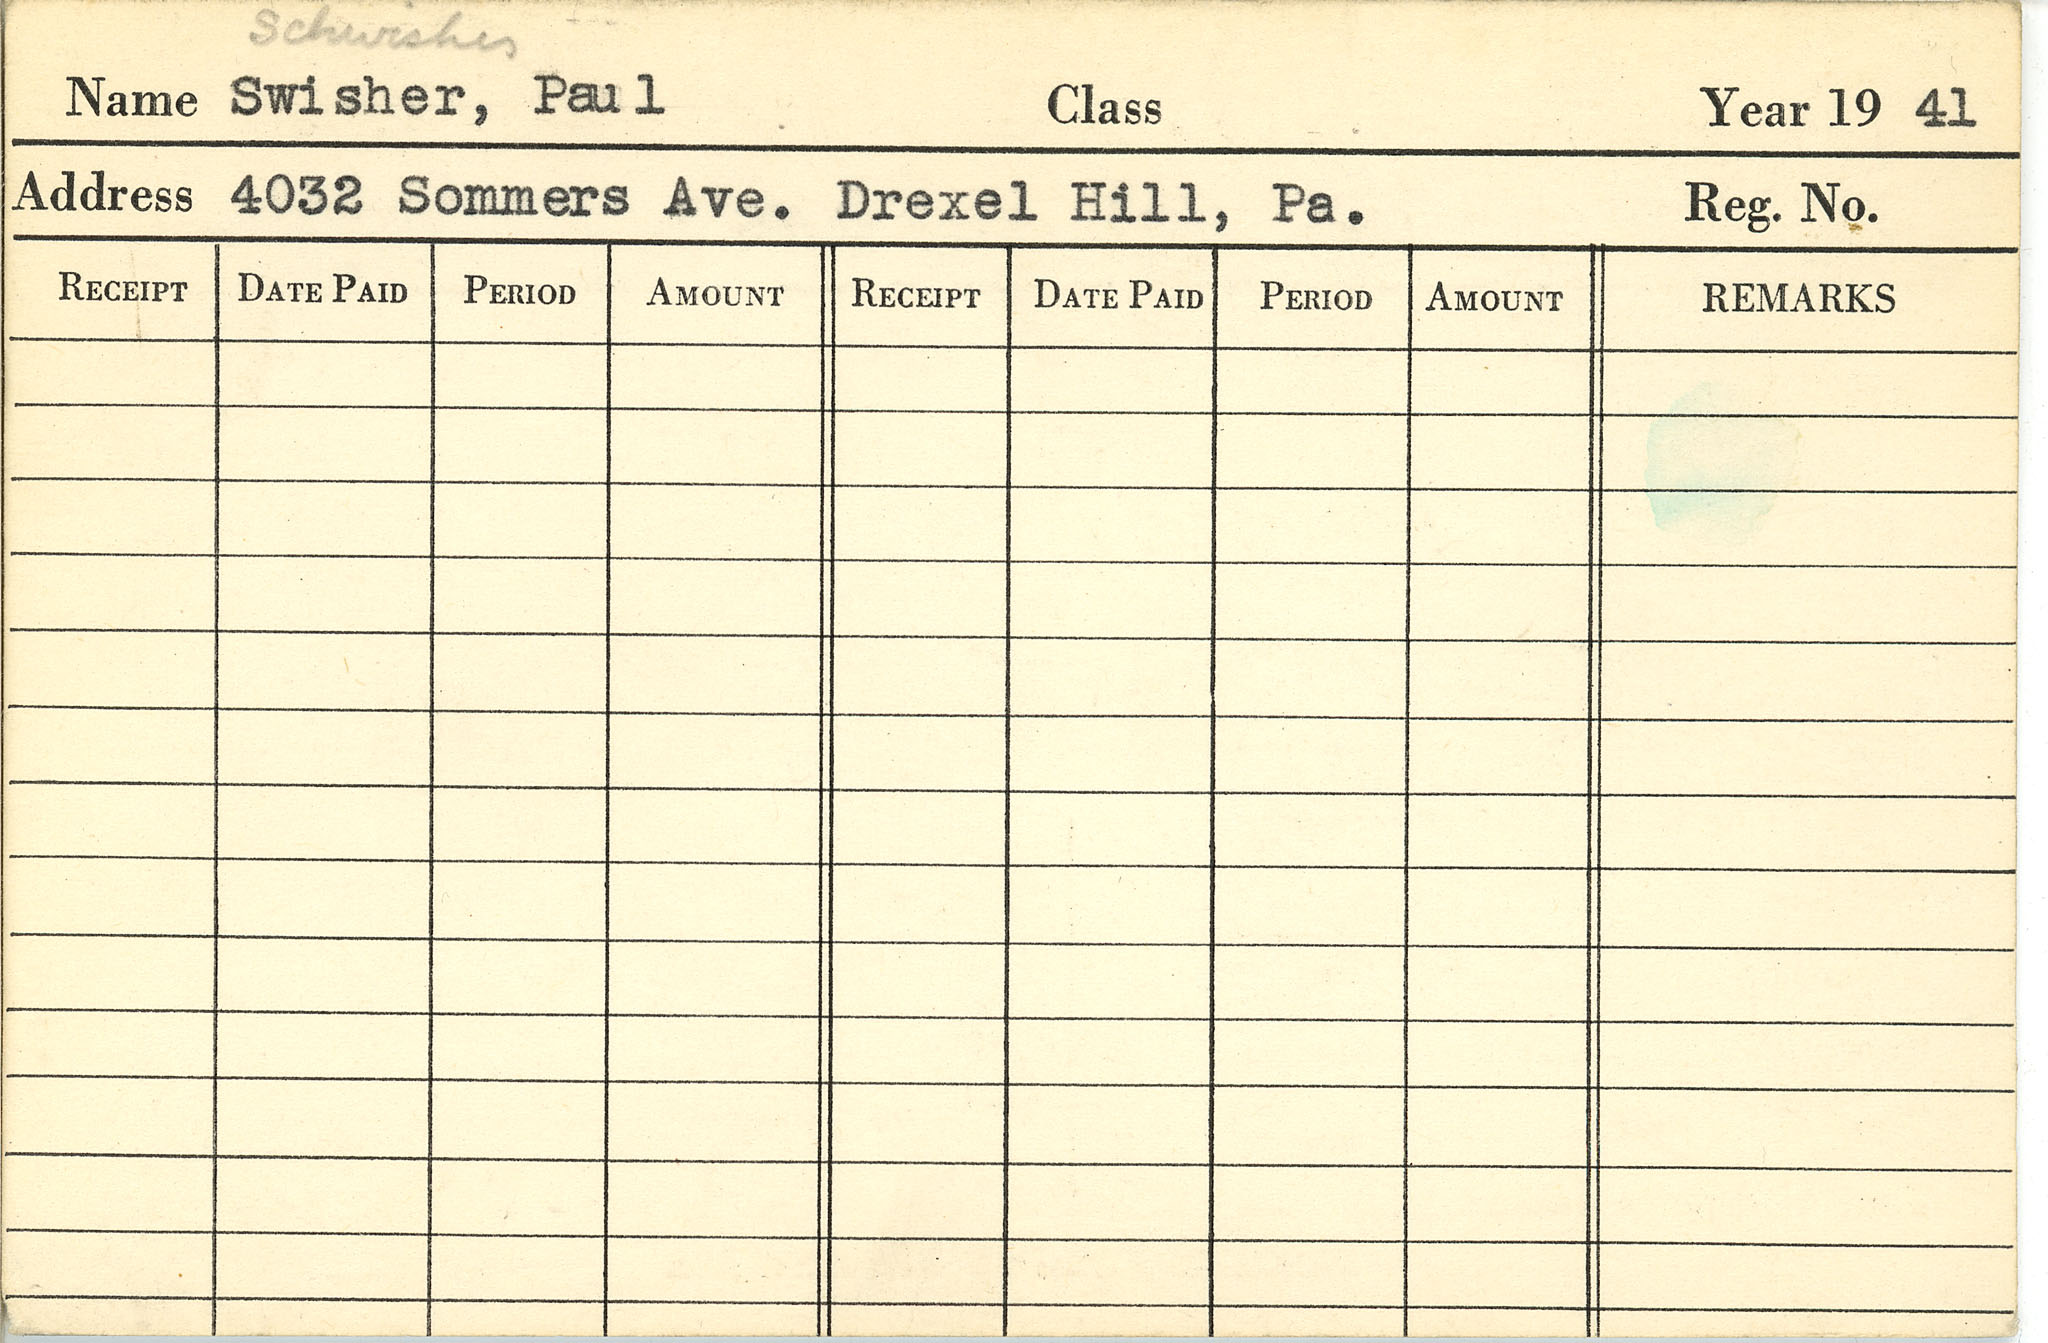 Schwisher
Name Swisher, Paul Class Year 19 41
Address 4032 Sommers Ave. Drexel Hill, Pa. Reg. No.
RECEIPT DATE PAID PERIOD AMOUNT RECEIPT DATE PAID PERIOD AMOUNT REMARKS